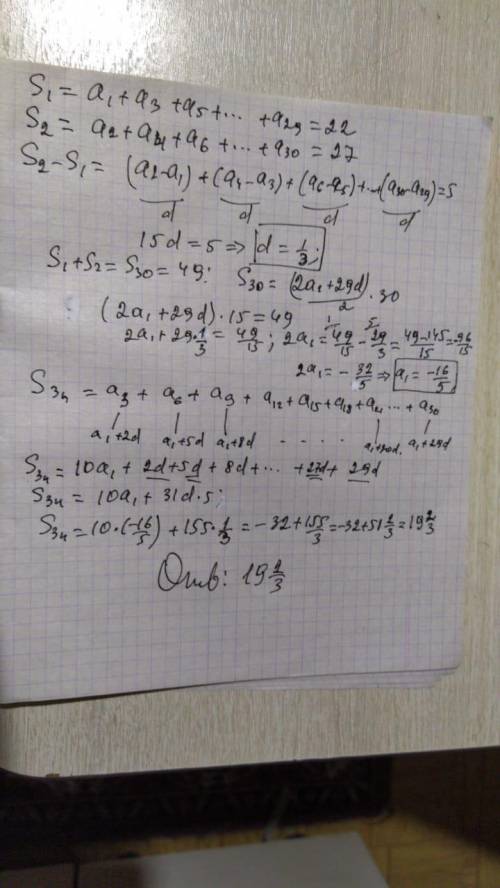 S₁ = a₁ + a₃ + a₅ + ... + a₂₉ = 22
S₂ = a₂ + a₄ + a₆ + ... + a₃₀ = 27
S₂ - S₁ = (a₂-a₁) + (a₄-a₃) + (a₆-a₅) + ... + (a₃₀-a₂₉) = 5
d d d d
15d = 5 ⇒ d = 1/3;
S₁ + S₂ = S₃₀ = 49: S₃₀ = (2a₁ + 29d)/2 · 30
(2a₁ + 29d) · 15 = 49
2a₁ + 29·1/3 = 49/15; 2a₁ = 49/15 - 29/3 = (49-145)/15 = -96/15
2a₁ = - 32/5 ⇒ a₁ = -16/5
S₃ₙ = a₃ + a₆ + a₉ + a₁₂ + a₁₅ + a₁₈ + a₂₁ ... + a₃₀
a₁+2d a₁+5d a₁+8d . . . . a₁+20d. a₁+29d
S₃ₙ = 10a₁ + 2d + 5d + 8d + ... + 27d + 29d
S₃ₙ = 10a₁ + 31d · 5;
S₃ₙ = 10·(-16/5) + 155·1/3 = -32 + 155/3 = -32 + 51 2/3 = 19 2/3
Отв: 19 2/3